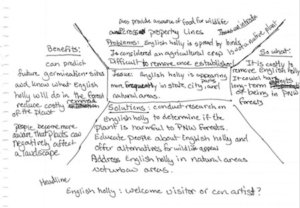 also provide a source of food for wildlife
across property lines
Problems: English holly is spread by birds
Is considered an agricultural crop
Difficult to remove once established
is not a native plant
Benefits:
can predict
future germination sites
and know what English
holly will do in the forest
reduce costly removal
of the plant
people become more
aware that plants can
negatively affect
a landscape
Issue: English holly is appearing
more frequently in state, city, and
natural areas.
So what:
It is costly to
remove English holly
It could harm
long-term
of being in PNW
forests
Solutions: conduct research on
English holly to determine if the
plant is harmful to PNW forests.
Educate people about English holly and
offer alternatives for wildlife appeal
Address English holly in natural areas
not urban areas.
Headline:
English holly: welcome visitor or con artist?